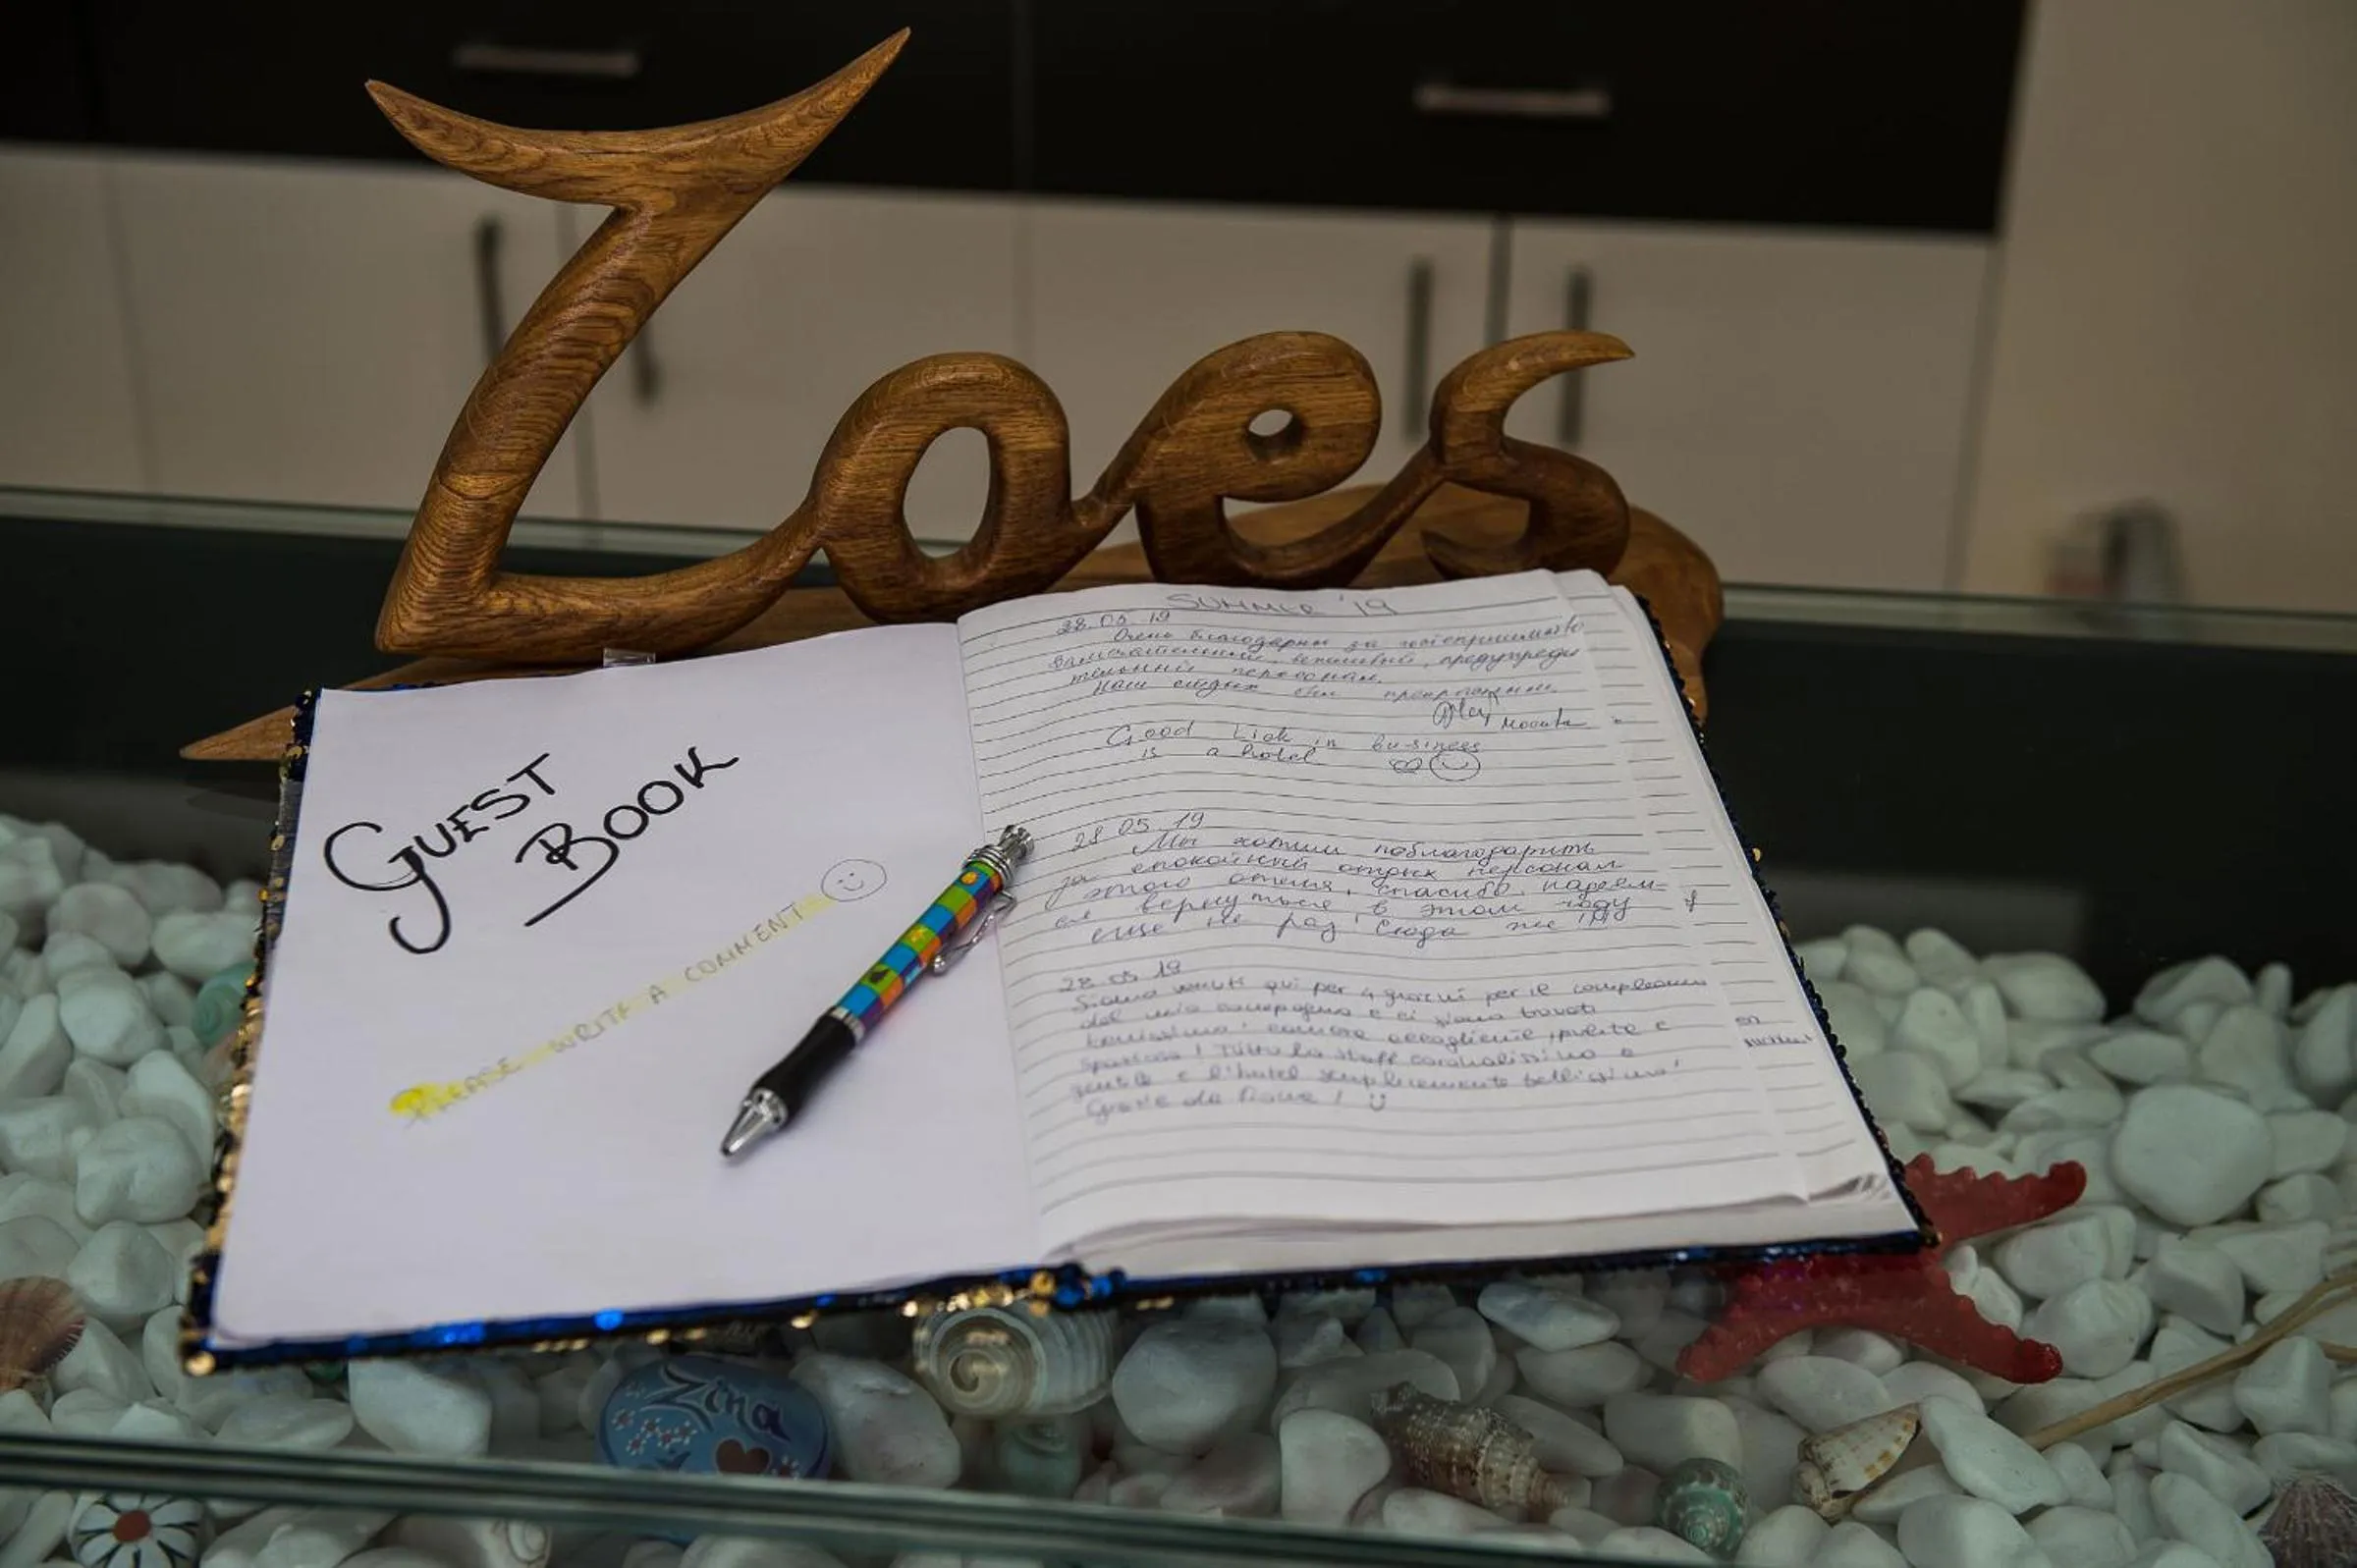 Zoes
GUEST
BOOK
PLEASE WRITE A COMMENT
SUMMER '19
28.05.19
Очень благодарны за гостеприимство
замечательный, вежливый, предупреди
тельный персонал.
Наш отдых был
Good Lick in business
is a hotel
28 05 19
Мы хотим поблагодарить
за спокойный отдых персонал
этого отеля, спасибо, надеем-
ся вернуться в этом году
еще не раз! Сюда же !!!
28.05.19
Siamo venuti qui per 4 giorni per il compleanno
del mio compagno e ci siamo trovati
benissimo! camere accogliente, pulite e
spaziose! Tutto lo staff cordialissimo e
gentile e l'hotel semplicemente bellissimo!
Grazie da
Zina